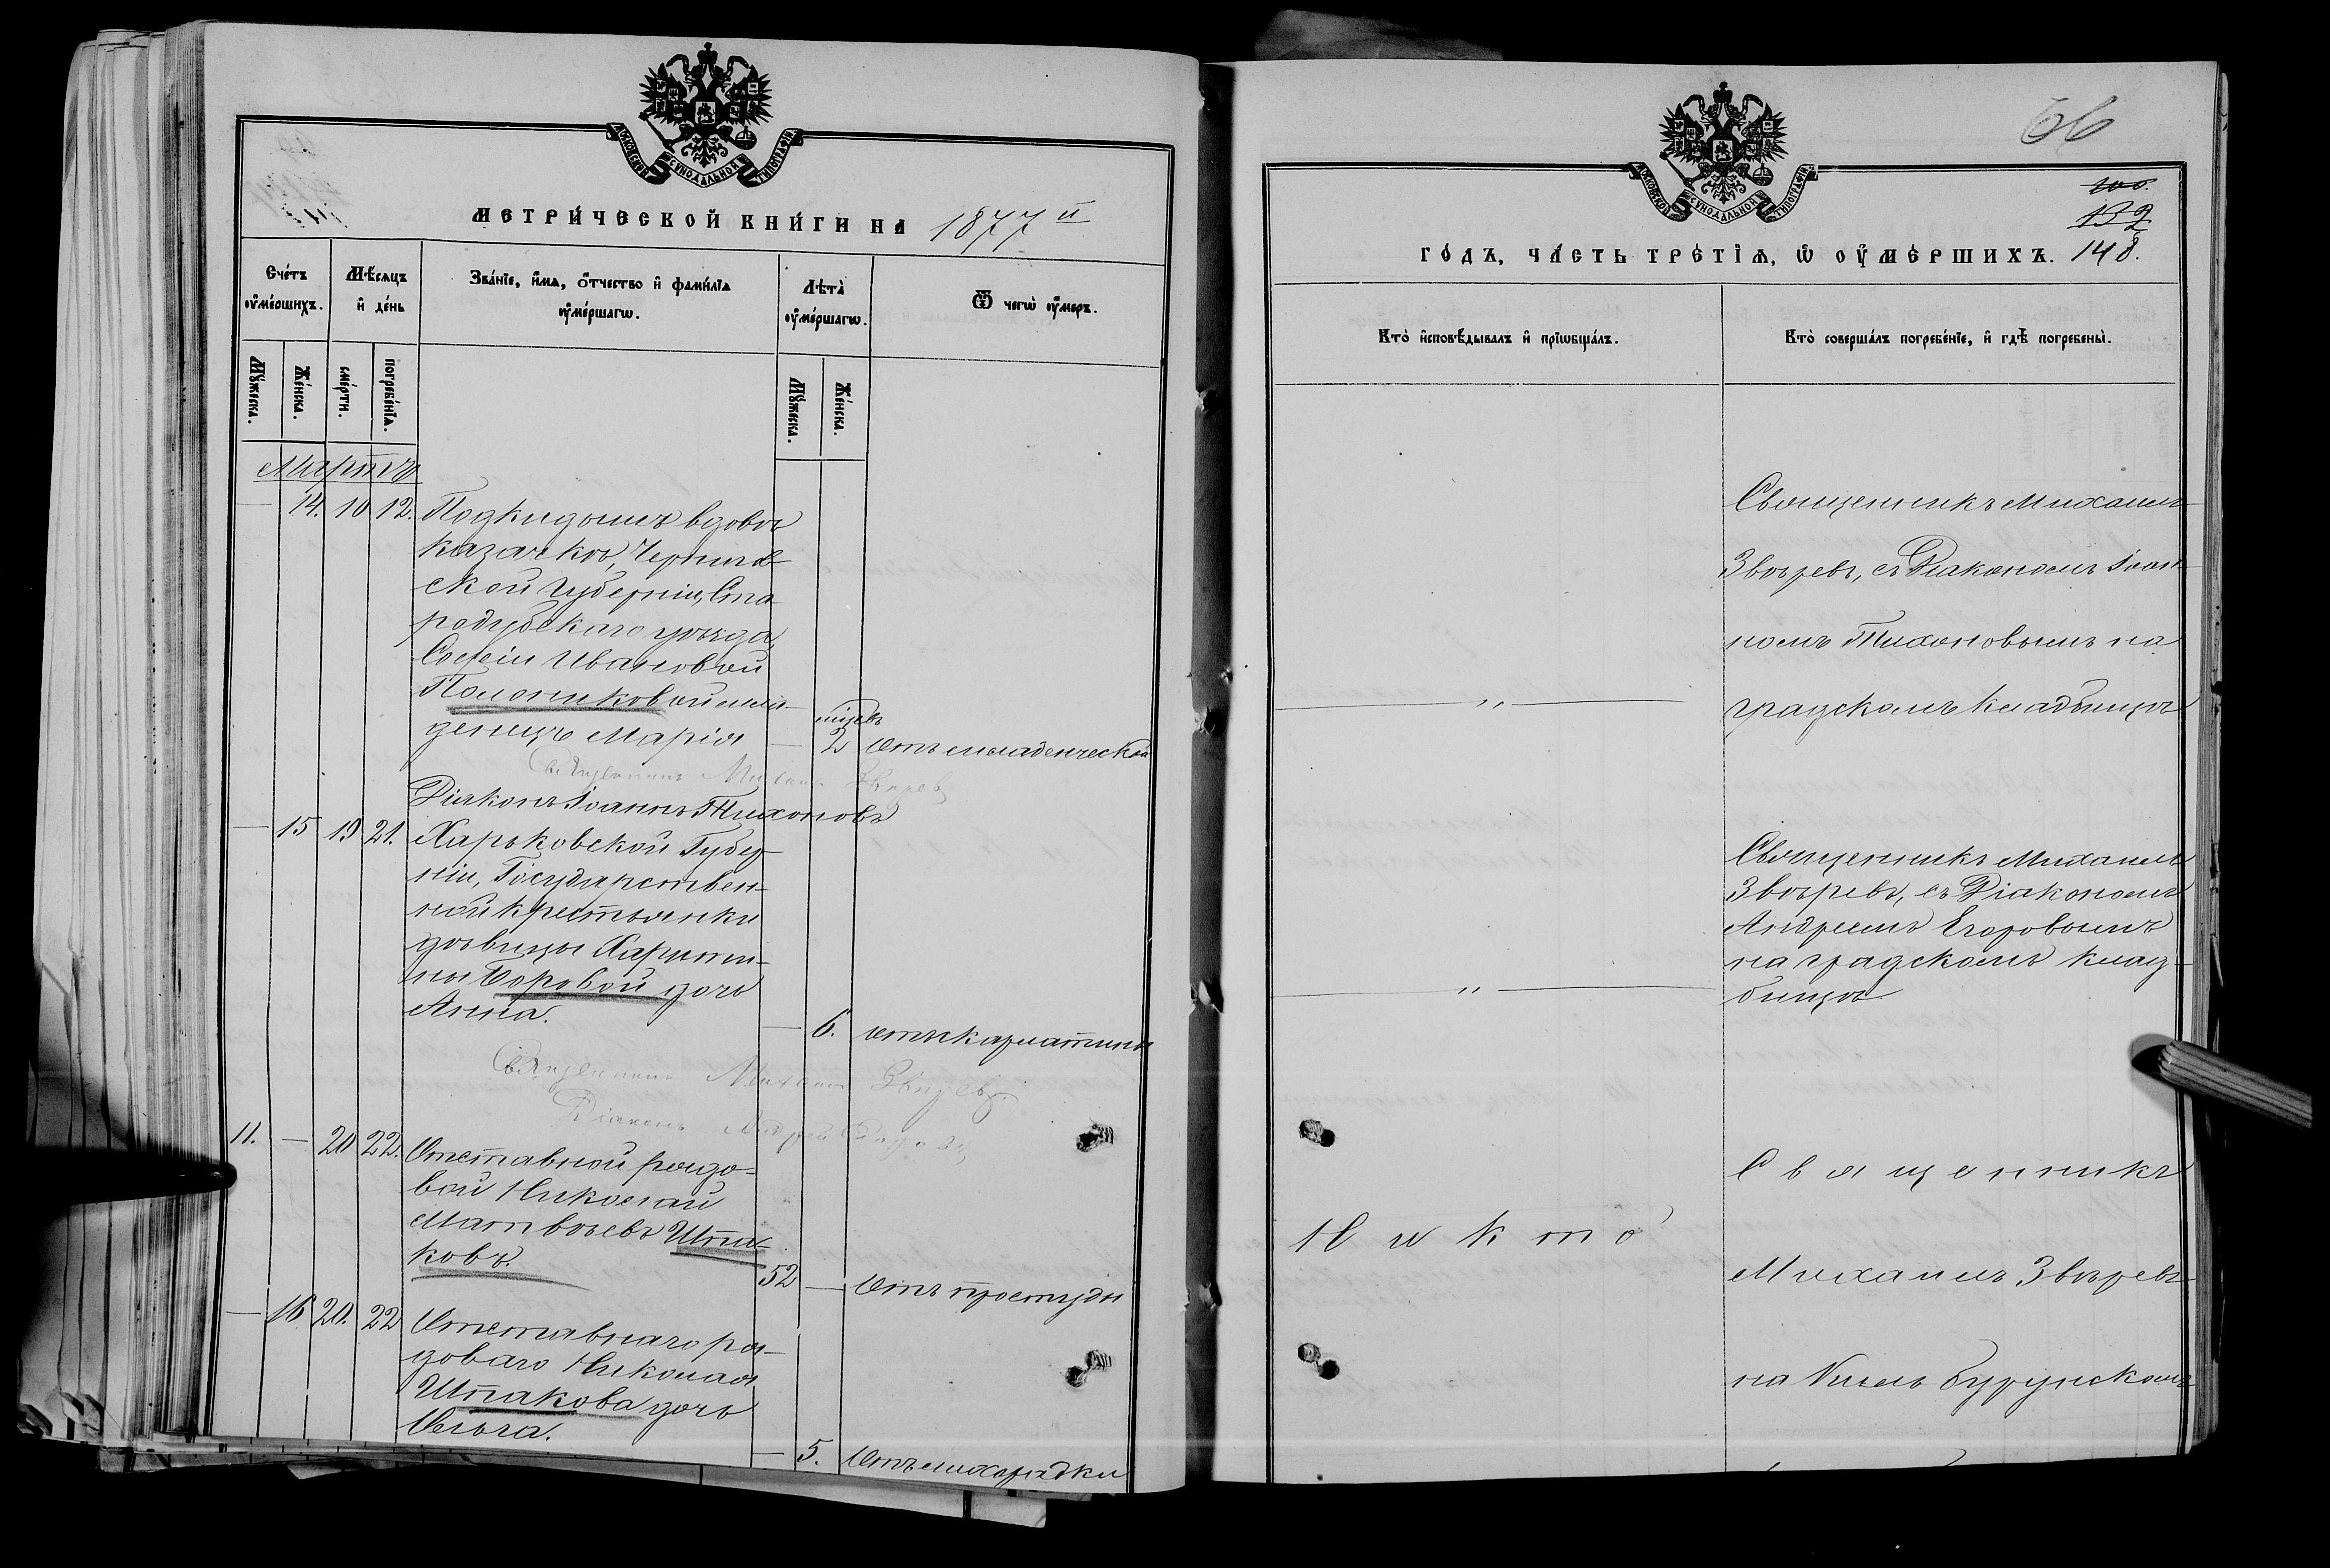 МОСКОВСКОЙ СѴНОДАЛЬНОЙ ТИПОГРАФІИ
МЕТРИ́ЧЕСКОЙ КНИ́ГИ НА 1877й
Сче́тъ ᲂу҆ме́ршихъ.
Мѣ́сяцъ и҆ де́нь
Зва́нїе, и҆́мѧ, ѻ҆́тчество и҆ фамилїѧ ᲂу҆ме́ршагѡ.
Лѣта̀ ᲂу҆ме́ршагѡ.
Ѿ чегѡ̀ ᲂу҆́меръ.
Мꙋ́жеска.
Же́нска.
сме́рти.
погребе́нїѧ.
Мꙋ́жеска.
Же́нска.
Мартъ
— 14. 10 12. Подкидышъ вдовы
казачки, Чернигов-
ской Губерніи, Ста-
родубскаго уѣзда,
Софіи Ивановой
младе-
нецъ Марія — 2 отъ младенческой
Священникъ Михаилъ Звѣревъ
Діаконъ Іоаннъ Тихоновъ
— 15 19 21. Харьковской Губер-
ніи, Государствен-
ной крестьянки
дѣвицы Харити-
ны Боровой дочь
Анна. — 6. отъ скарлатины
Священникъ Михаилъ Звѣревъ.
Діаконъ Андрей Егоровъ
11. — 20 22. Отставной рядо-
вой Николай
Матвѣевъ Шпа-
ковъ. 52 — Отъ простуды
— 16 20. 22 Отставнаго ря-
доваго Николая
Шпакова дочь
Ольга. — 5. Отъ лихорадки
66
МОСКОВСКОЙ СѴНОДАЛЬНОЙ ТИПОГРАФІИ
132
ГО́ДЪ, ЧА́СТЬ ТРЕ́ТІѦ, Ѽ ОУ҆МЕ́РШИХЪ. 148.
Кто̀ и҆сповѣ́дывалъ и҆ прїѡбща́лъ.
Кто̀ соверша́лъ погребе́нїе, и҆ гдѣ̀ погребены̀.
Священникъ Михаилъ
Звѣревъ, съ Діакономъ Іоан-
номъ Тихоновымъ на
— „ — градскомъ кладбищѣ
Священникъ Михаилъ
Звѣревъ, съ Діакономъ
Андреемъ Егоровымъ
на градскомъ клад-
— „ — бищѣ
Священникъ
Никто
Михаилъ Звѣревъ
на Кишь бурунскомъ